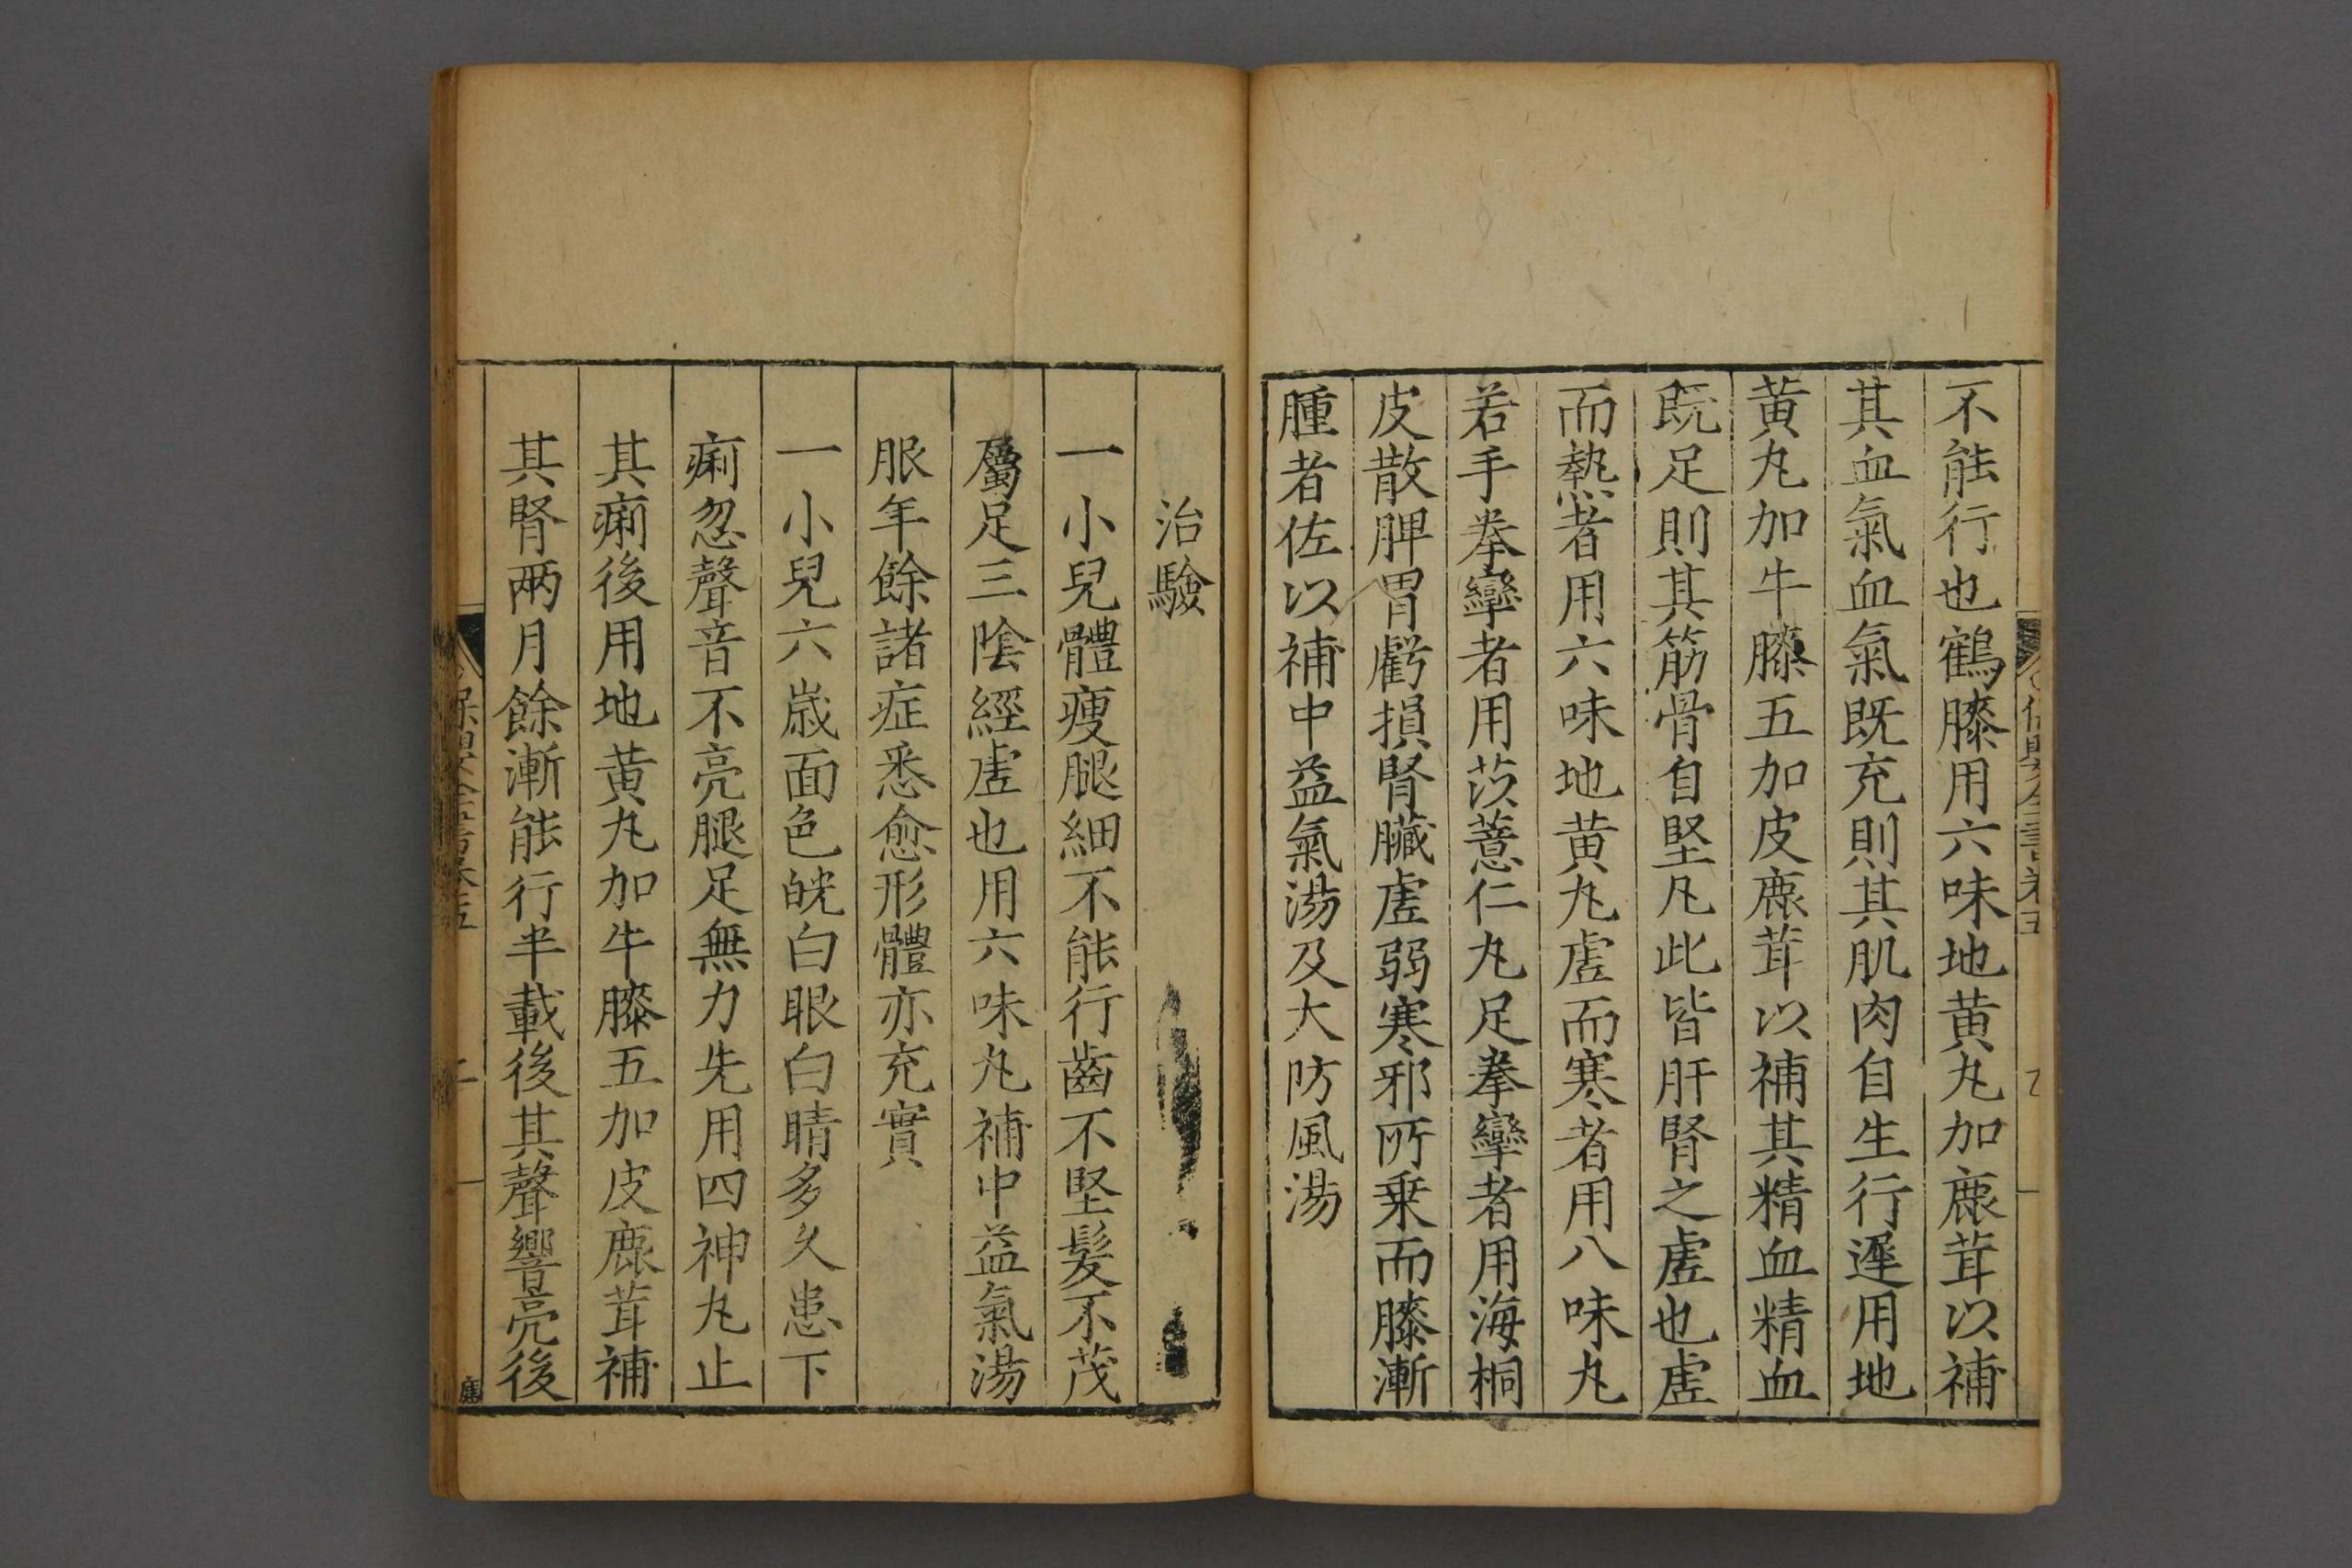 不能行也鶴膝用六味地黄丸加鹿茸以補
其血氣血氣既充則其肌肉自生行遲用地
黄丸加牛膝五加皮鹿茸以補其精血精血
既足則其筋骨自堅凡此皆肝腎之虛也虛
而熱者用六味地黄丸虛而寒者用八味丸
若手拳攣者用茨薏仁丸足拳攣者用海桐
皮散脾胃虧損腎臟虛弱寒邪所乗而膝漸
腫者佐以補中益氣湯及大防風湯
治驗
一小兒體瘦腿細不能行齒不堅髮不茂
屬足三陰經虛也用六味丸補中益氣湯
服年餘諸症悉愈形體亦充實
一小兒六歲面色㿠白眼白睛多久患下
痢忽聲音不亮腿足無力先用四神丸止
其痢後用地黄丸加牛膝五加皮鹿茸補
其腎兩月餘漸能行半載後其聲響亮後